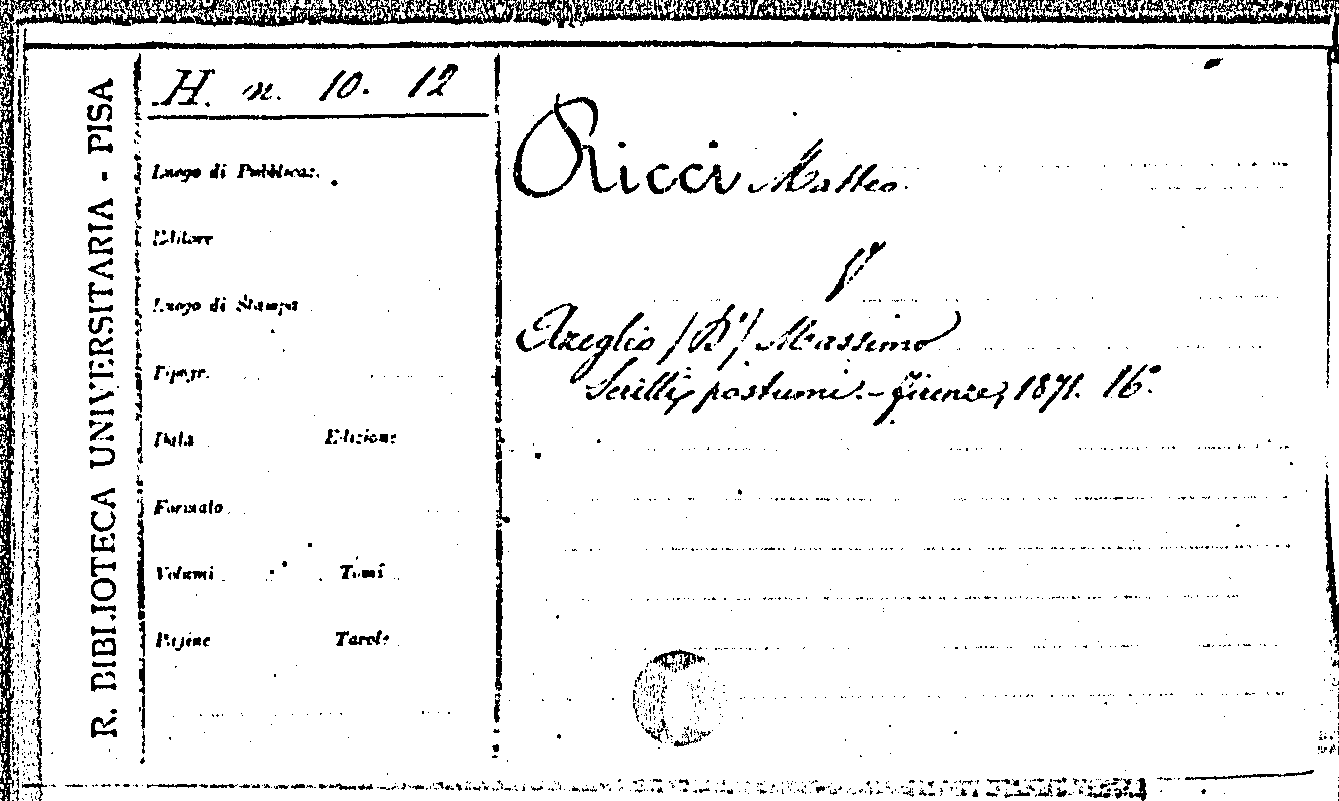 R. BIBLIOTECA UNIVERSITARIA - PISA
H. n. 10. 12
Luogo di Pubblicaz.
Editore
Luogo di Stampa
Tipogr.
Data Edizione
Formato
Volumi Tomi
Pagine Tavole
Ricci Matteo
V
Azeglio (D') Massimo
Scritti postumi. - Firenze, 1871. 16°